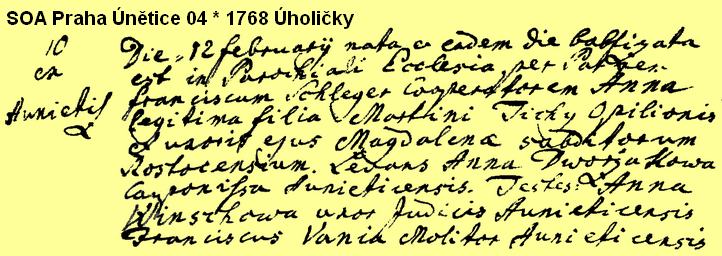 SOA Praha Únětice 04 * 1768 Úholičky
10
ex
Aunietis
Die 12 february nata et eadem die baptizata
est in Parochiali Ecclesia per Patrem
Franciscum Schleger Cooperatorem Anna
legitima filia Martini Tichy Opilionis
et uxoris ejus Magdalena subditorum
Rostocensium. Levans Anna Dworzakowa
Cauponissa Aunieticensis. Testes: Anna
uxor Judicis Aunieticensis
Franciscus Vania Molitor Aunieticensis